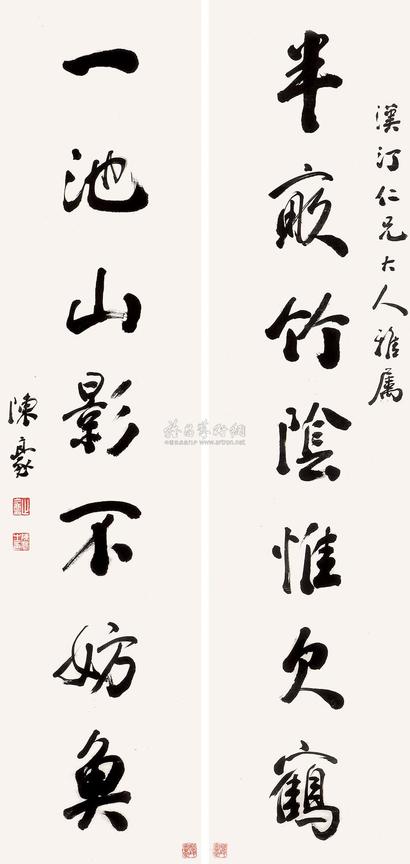 漢汀仁兄大人雅属
半畝竹陰惟欠鶴
一池山影不妨魚
陳豪
www.artron.net